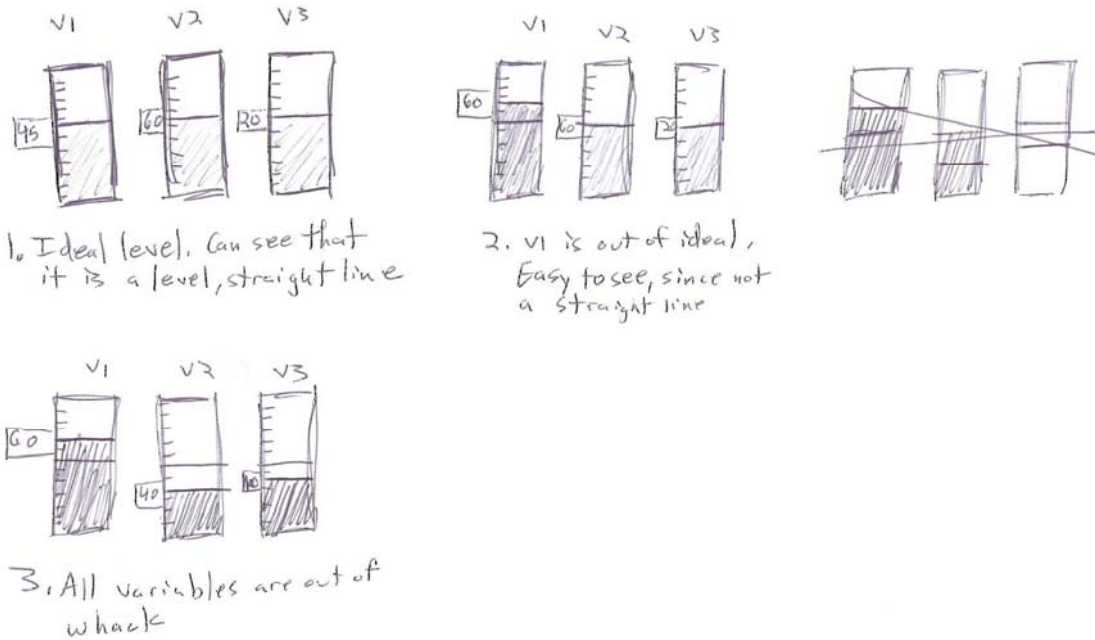 V1 V2 V3
45 60 20
1. Ideal level. Can see that
it is a level, straight line
V1 V2 V3
60 60 20
2. V1 is out of ideal,
Easy to see, since not
a straight line
V1 V2 V3
60 40
3. All variables are out of
whack